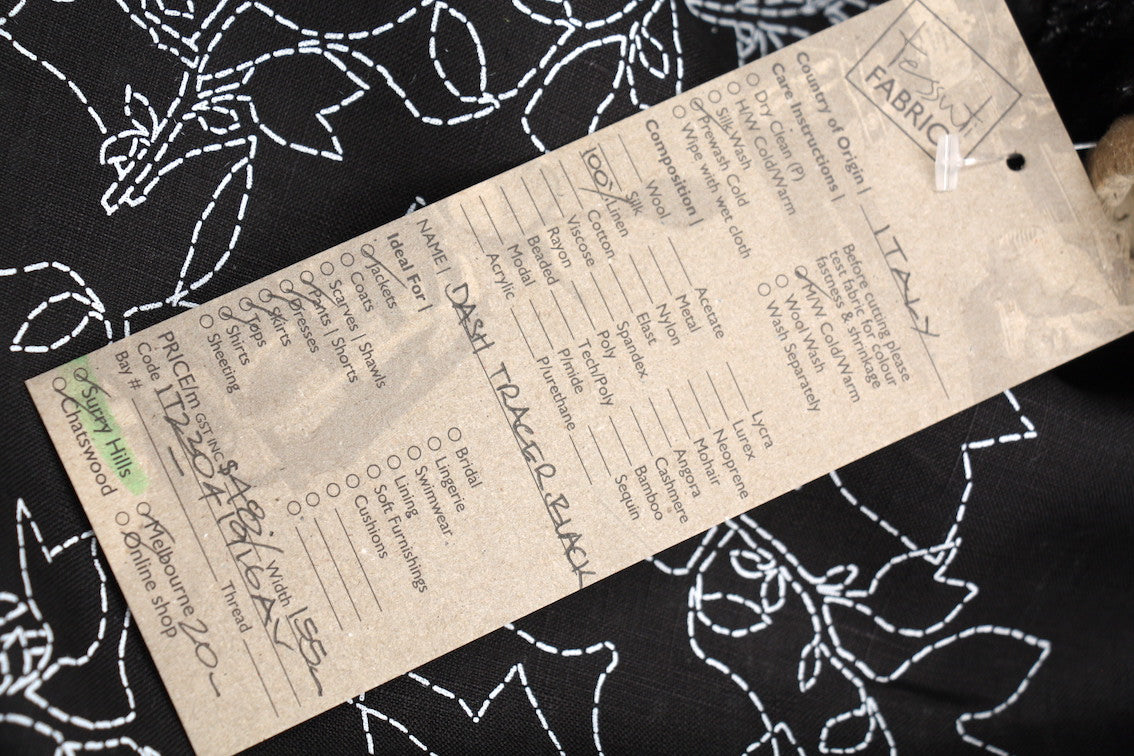 tessuti
FABRICS
Country of Origin | ITALY
Care Instructions |
Before cutting please
test fabric for colour
fastness & shrinkage
Dry Clean (P)
H/W Cold/Warm
Silk Wash
Prewash Cold
Wipe with wet cloth
M/W Cold/Warm
Wool Wash
Wash Separately
Composition |
Wool
Silk
100% Linen
Cotton
Viscose
Rayon
Beaded
Modal
Acrylic
Acetate
Metal
Nylon
Elast
Spandex
Poly
Tech/Poly
P/mide
P/urethane
Lycra
Lurex
Neoprene
Mohair
Angora
Cashmere
Bamboo
Sequin
NAME | DASH TRACER BLACK
Ideal For |
Jackets
Coats
Scarves | Shawls
Pants | Shorts
Dresses
Skirts
Tops
Shirts
Sheeting
Bridal
Lingerie
Swimwear
Lining
Soft Furnishings
Cushions
PRICE/m GST INC $ Width 155
Code Thread
Bay #
Surry Hills
Chatswood
Melbourne 20
Online shop